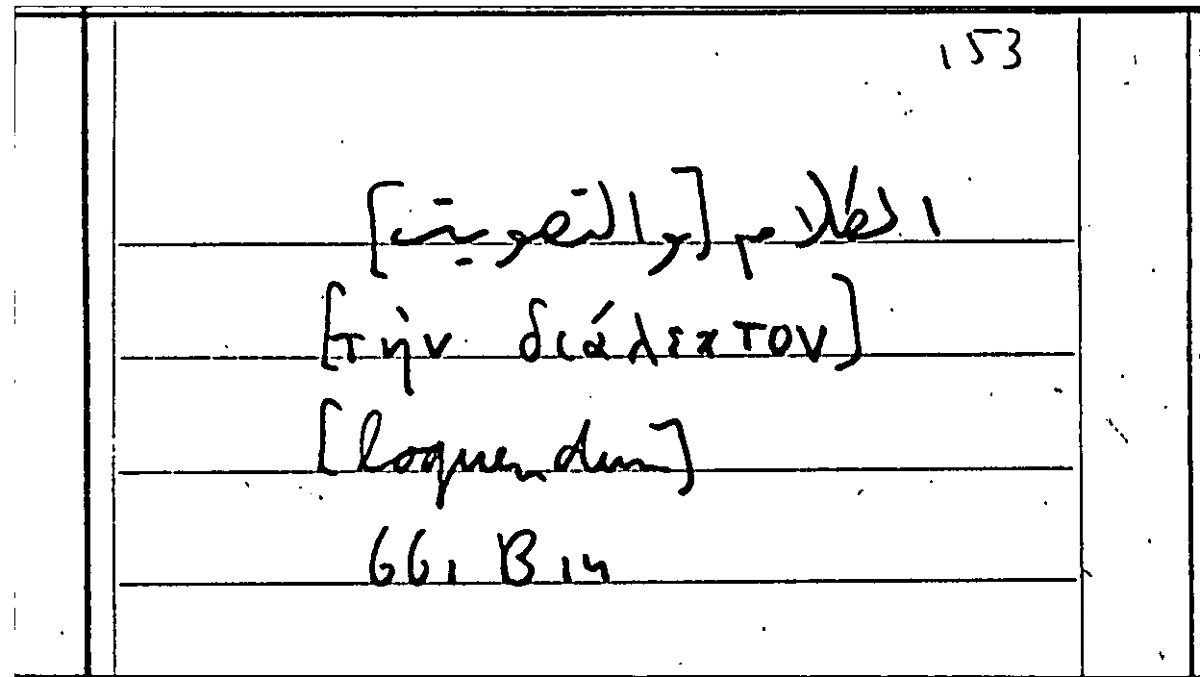 153
الكلام [والتصويت]
[τὴν διάλεκτον]
[loquendum]
661 B 14